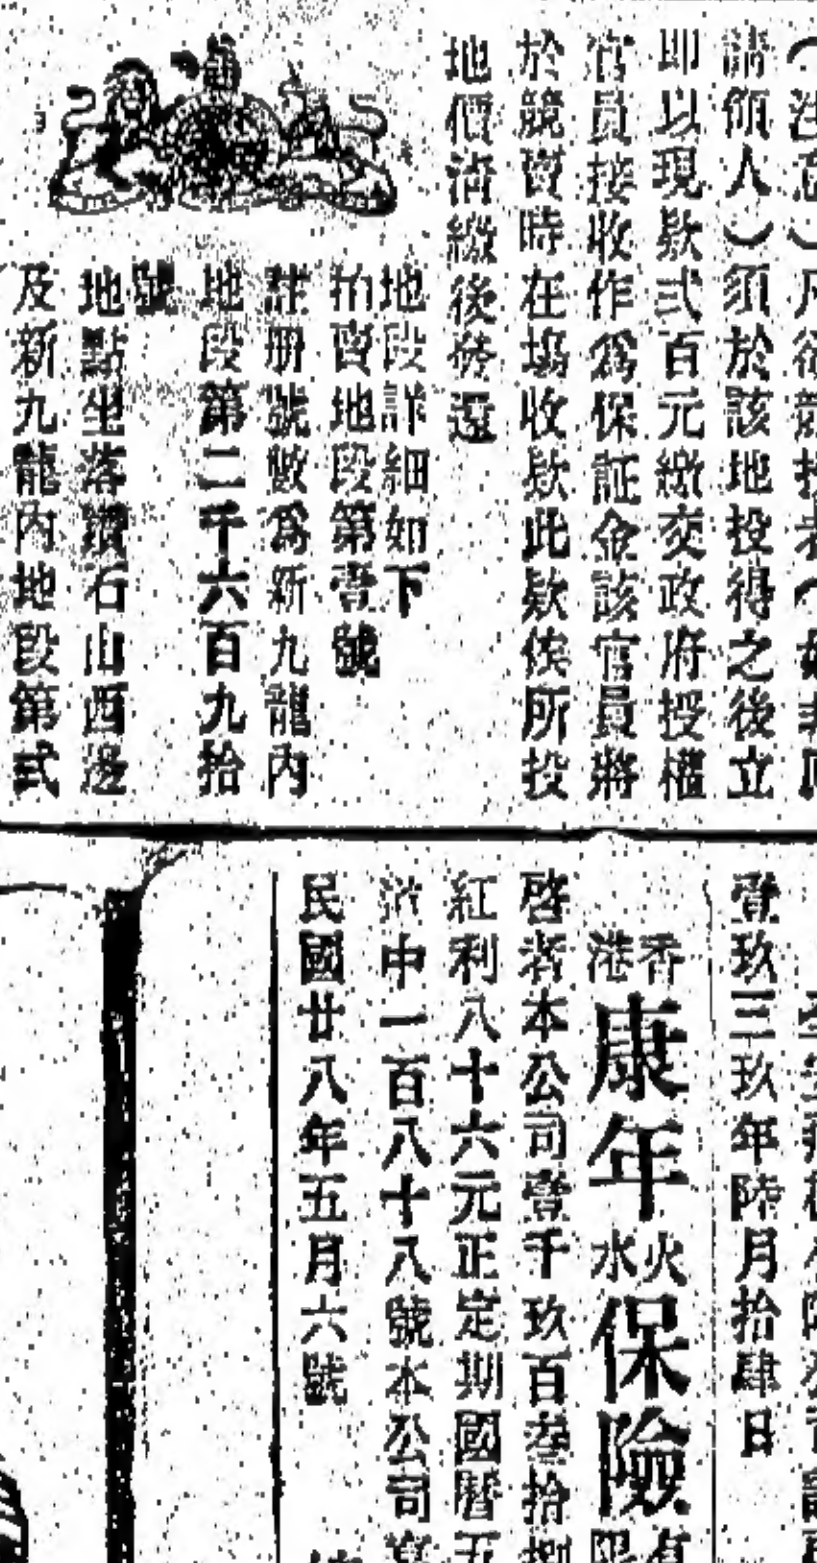 （注意）凡欲競投者（如非原
請領人）須於該地投得之後立
即以現欵弍百元繳交政府授權
官員接收作爲保証金該官員將
於競賣時在塲收欵此欵俟所投
地價清繳後發還
地段詳細如下
拍賣地段第壹號
註册號數爲新九龍內
地段第二千六百九拾
號
地點坐落鑽石山西邊
及新九龍內地段第弍
壹玖三玖年陸月拾肆日
香港康年火水保險有限
啓者本公司壹千玖百叁拾捌
紅利八十六元正定期國曆五
道中一百八十八號本公司
民國廿八年五月六號